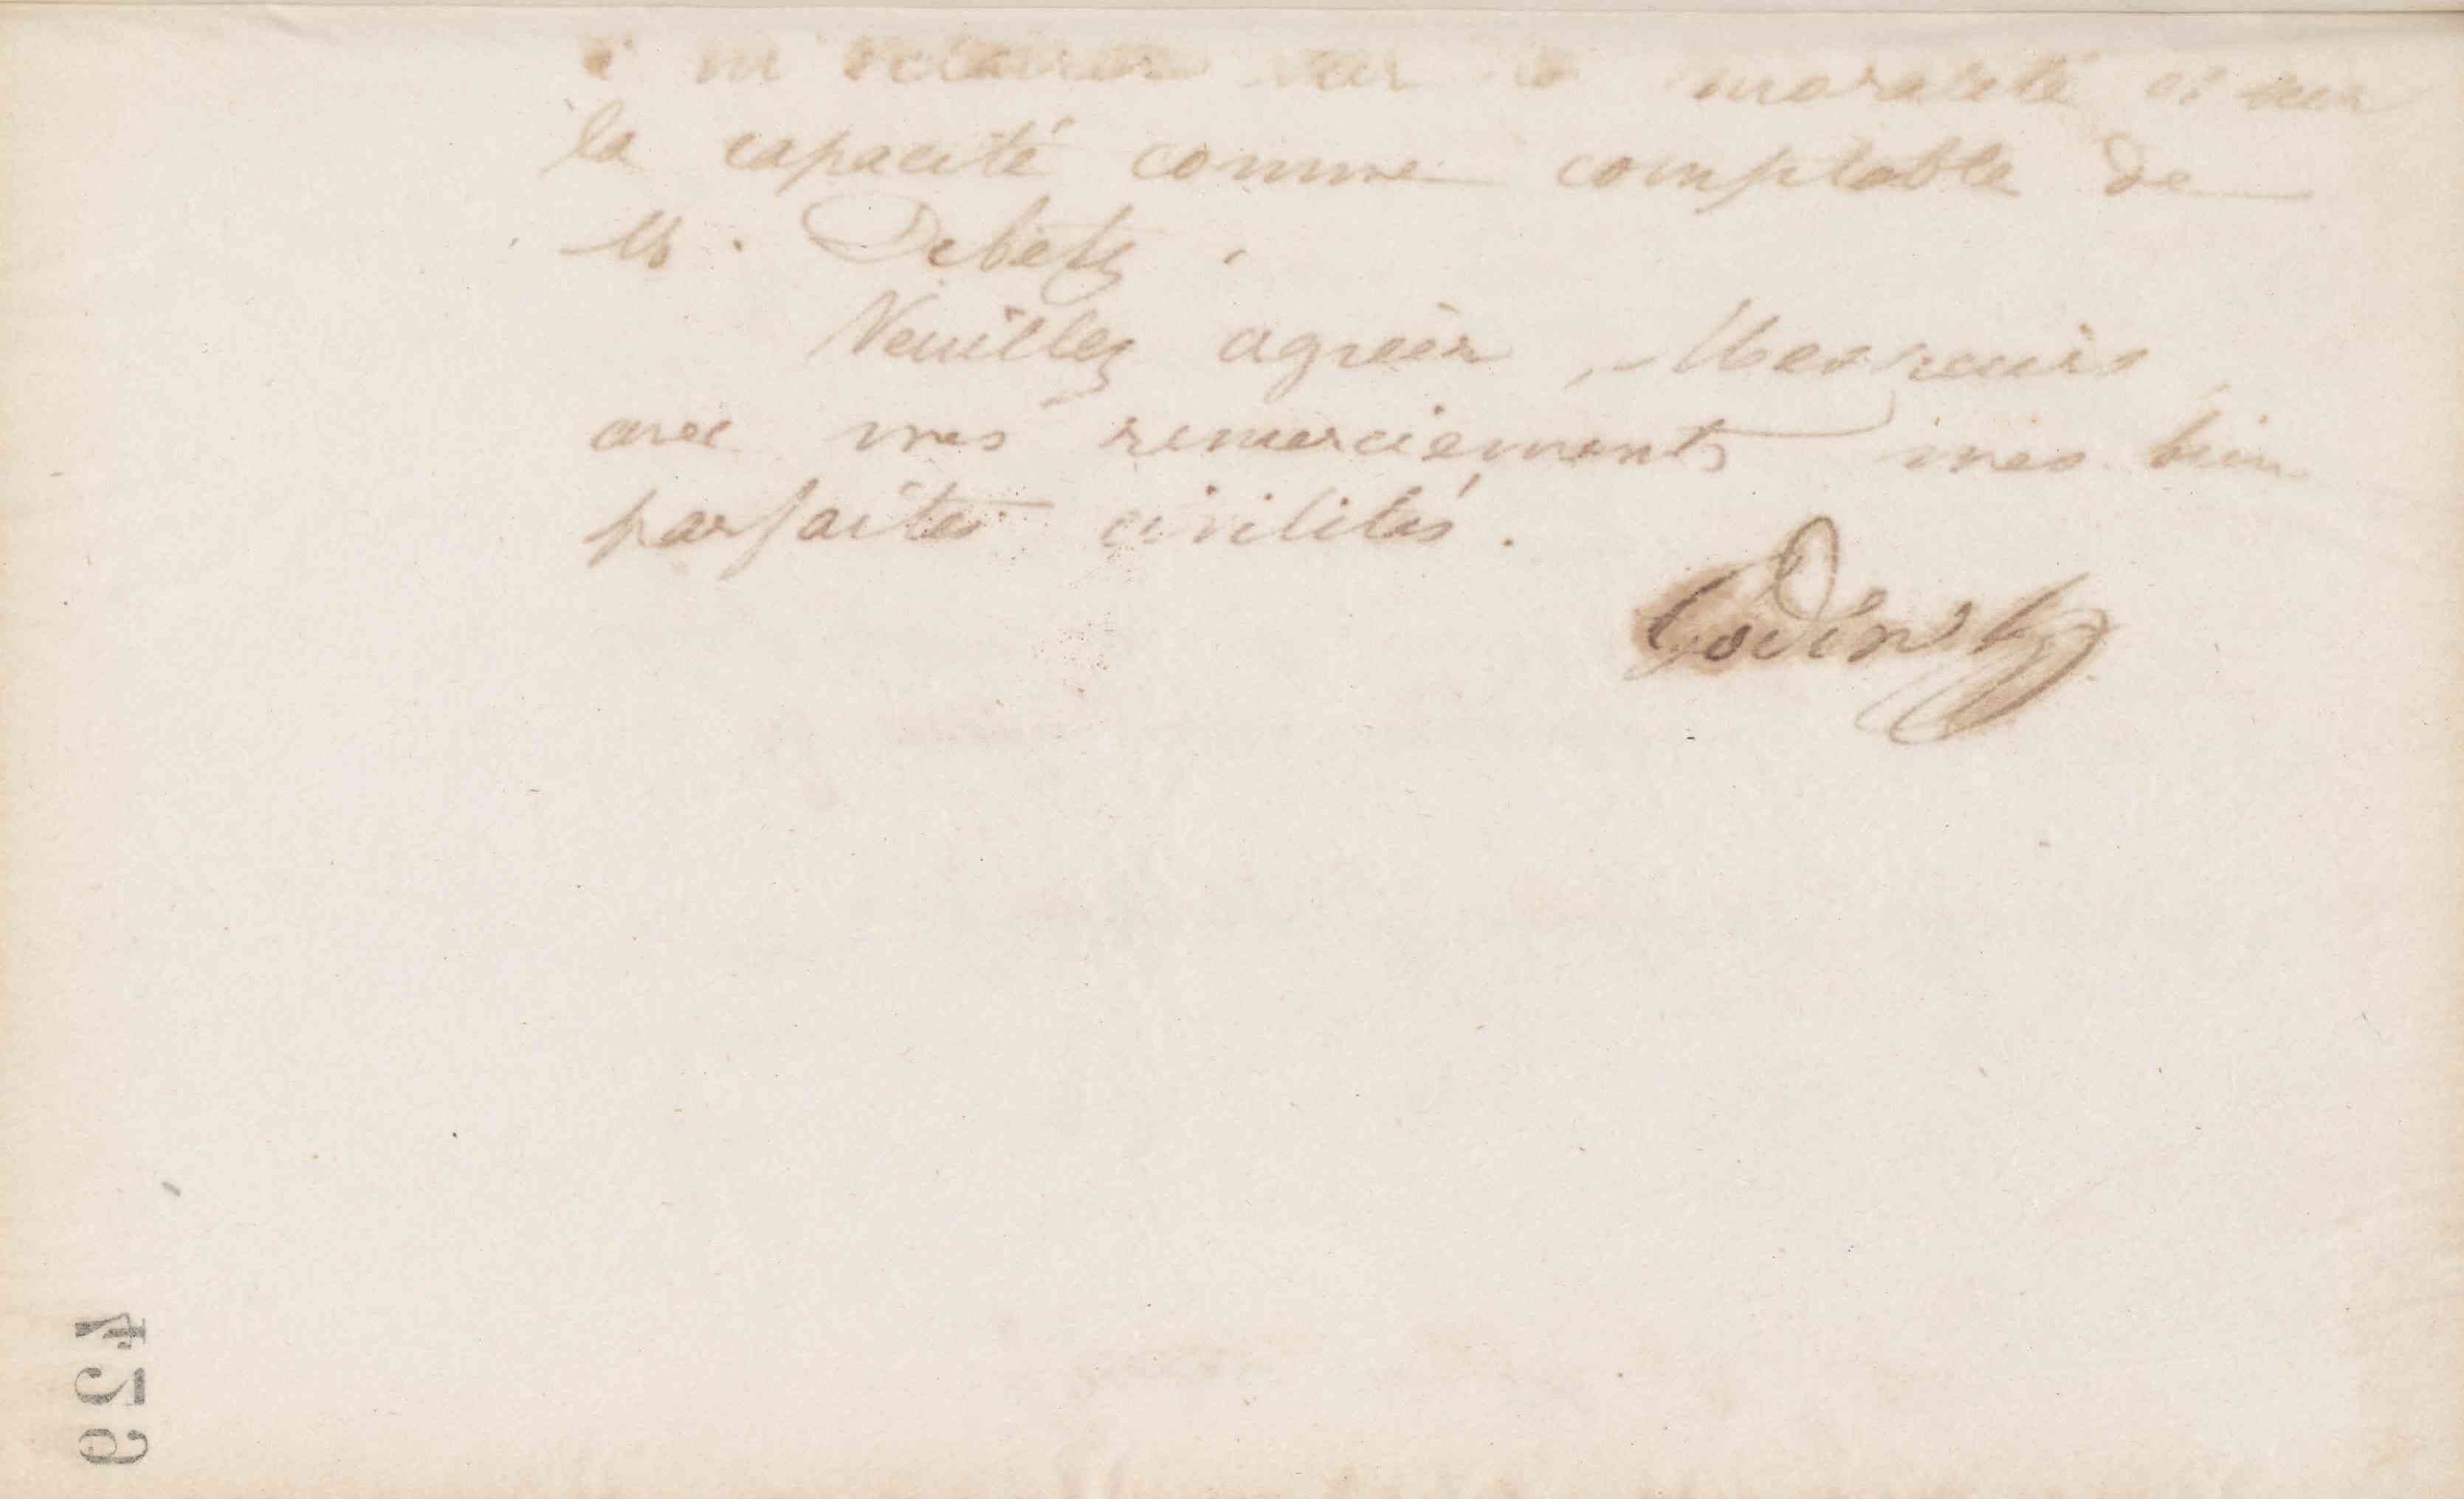 à m'éclairer sur la moralité et sur
la capacité comme comptable de
M. Debety.
Veuillez agréer, Messieurs,
avec mes remerciements mes bien
parfaites civilités.
Godin
459